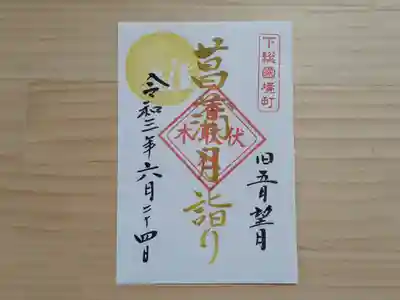 下総國境町
旧五月望月
菖蒲月詣り
伏木
香取
令和三年六月二十四日